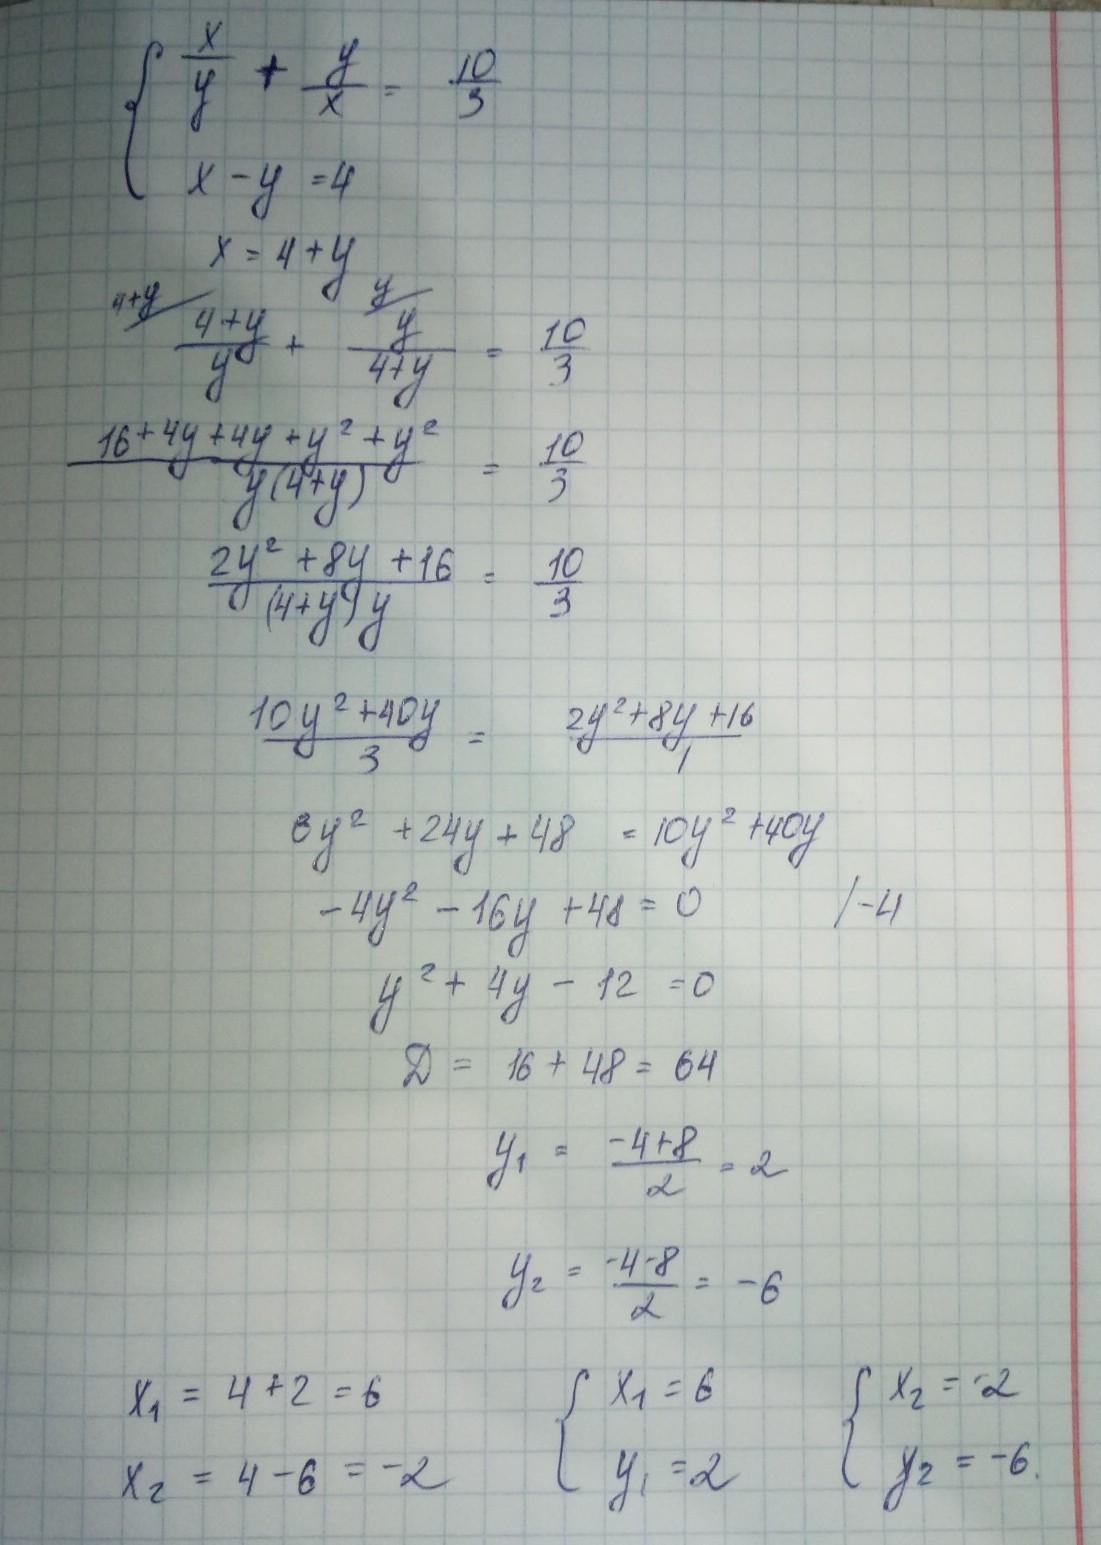 { x/y + y/x = 10/3
x - y = 4
x = 4 + y
4+y/ y/
(4+y)/y + y/(4+y) = 10/3
(16 + 4y + 4y + y² + y²)/(y(4+y)) = 10/3
(2y² + 8y + 16)/((4+y)y) = 10/3
(10y² + 40y)/3 = (2y² + 8y + 16)/1
6y² + 24y + 48 = 10y² + 40y
-4y² - 16y + 48 = 0 /-4
y² + 4y - 12 = 0
D = 16 + 48 = 64
y₁ = (-4+8)/2 = 2
y₂ = (-4-8)/2 = -6
x₁ = 4 + 2 = 6 { x₁ = 6 { x₂ = -2
x₂ = 4 - 6 = -2 y₁ = 2 y₂ = -6.